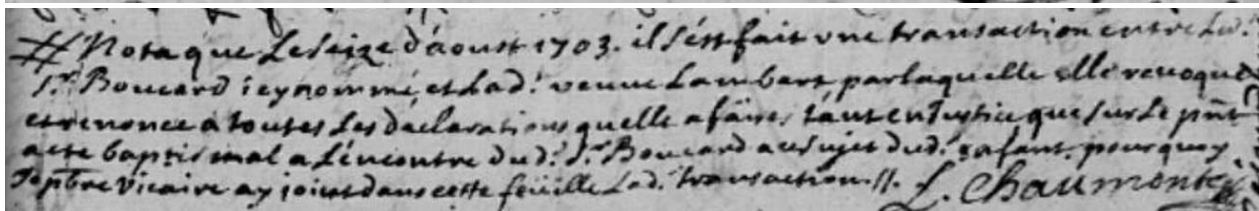 Nota que Le seize d'aoust 1703. il s'est fait une transaction entre Led.
Sr. Boucard icy nommé, et Lad.e veuve Lambert, par laquelle elle revoque
et renonce a toutes Les declarations quelle a faites tant en Justice que sur Le pñt
acte baptismal a L'encontre dud. Sr. Boucard au sujet dud. enfant. pourquoy
vicaire ay joint dans cette feüille Lad. transaction //. L. Chaumont